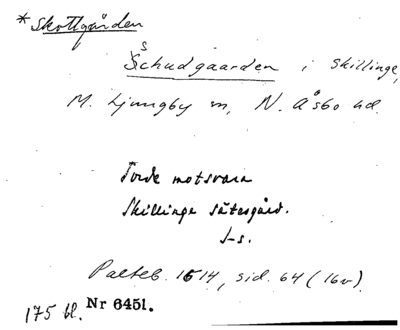 * Skottgården
S
Schudgaarden i Skillinge,
M. Ljungby sn, N. Åsbo hd.
Torde motsvara
Skillinge sätesgård.
J-s.
Palteb. 1614, sid. 64 (16v)
175 bl. Nr 6451.